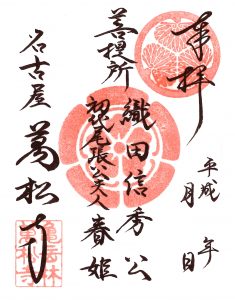 奉拝
平成 年
月 日
織田信秀公
菩提所
初代尾張公夫人 春姫
名古屋 萬松寺
亀岳林
萬松寺